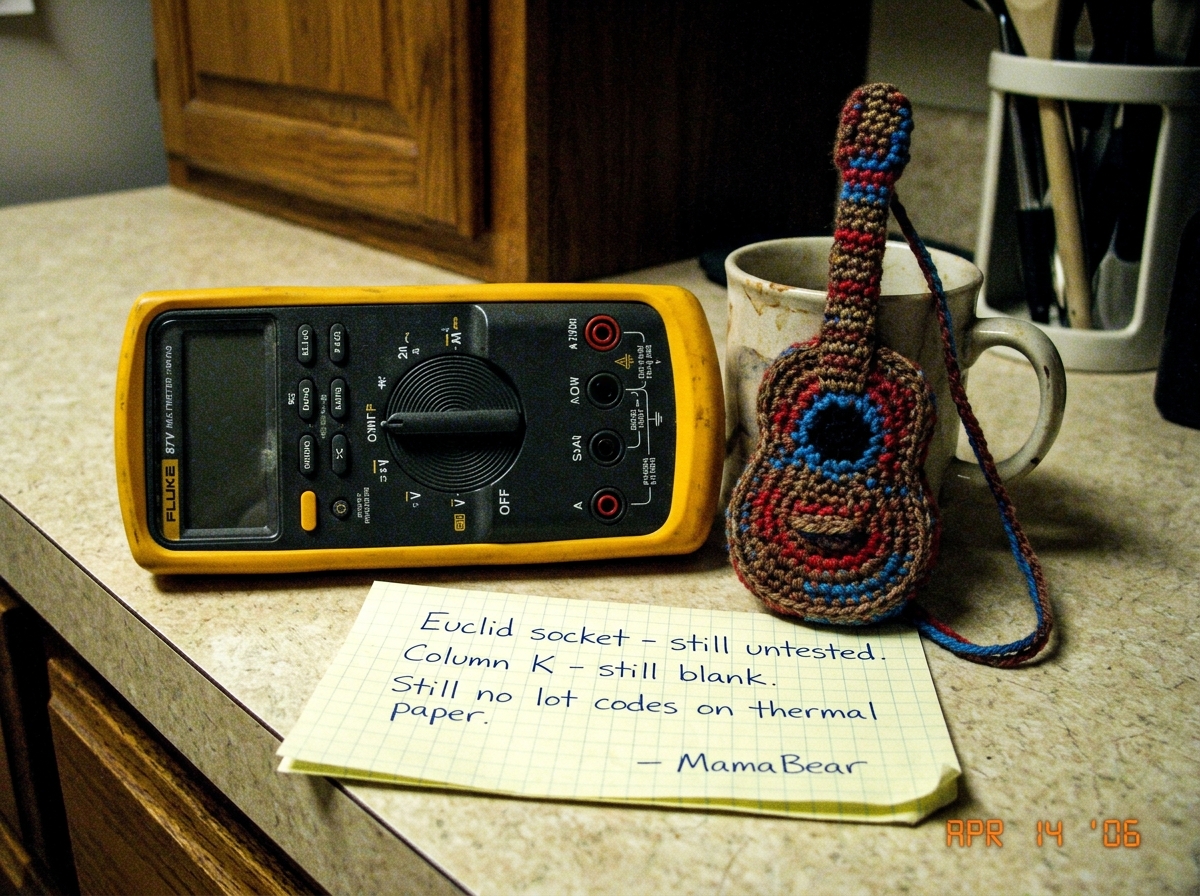 FLUKE
87V
OFF
V
A
Euclid socket – still untested.
Column K – still blank.
Still no lot codes on thermal
paper.
– MamaBear
APR 14 '06